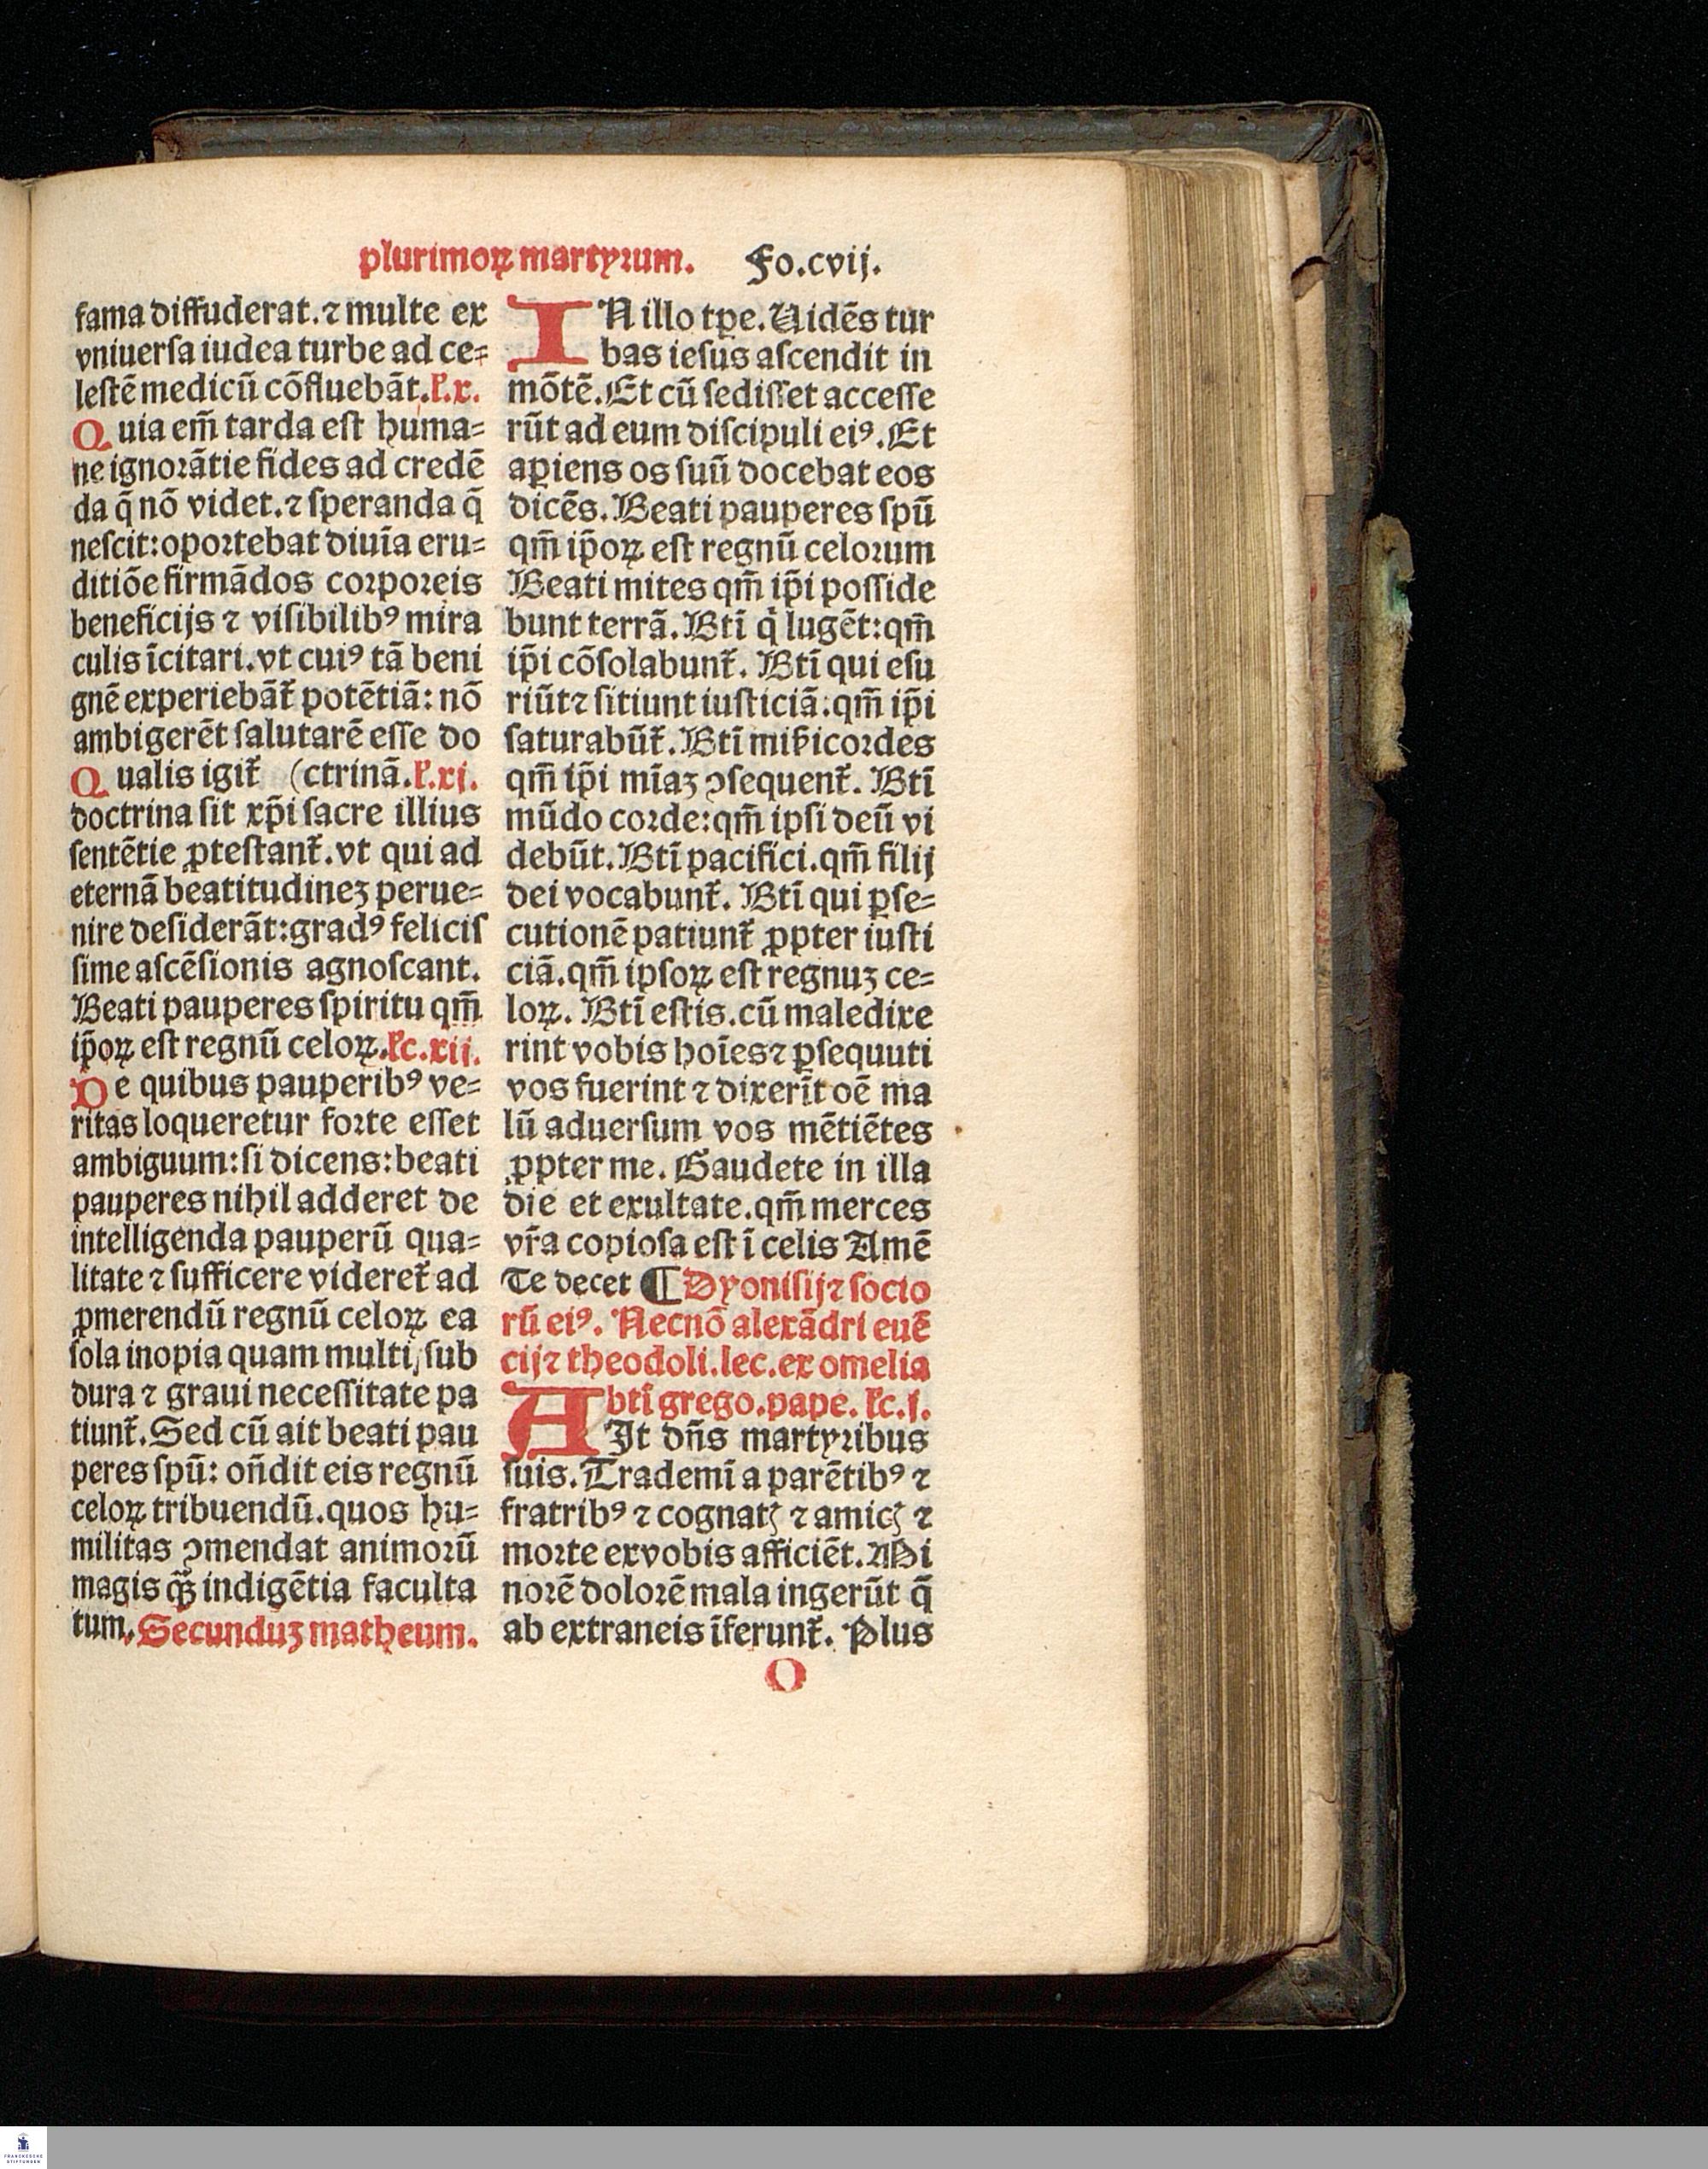 plurimoꝝ martyrum. Fo.cvij.
fama diffuderat.⁊ multe ex
vniuerſa iudea turbe ad ce⸗
leſtē medicū cōfluebāt.ł.x.
Quia em̄ tarda eſt huma⸗
ne ignorātie fides ad credē
da q̄ nō videt.⁊ ſperanda q̄
neſcit:oportebat diuīa eru⸗
ditiōe firmādos corporeis
beneficijs ⁊ viſibilibꝰ mira
culis īcitari.vt cuiꝰ tā beni
gnē experiebāt᷑ potētiā: nō
ambigerēt ſalutarē eſſe do
Qualis igit᷑ (ctrinā.ł.xj.
doctrina ſit xp̄i ſacre illius
ſentētie ꝓteſtant᷑.vt qui ad
eternā beatitudineꝫ perue⸗
nire deſiderāt:gradꝰ feliciſ
ſime aſcēſionis agnoſcant.
Beati pauperes ſpiritu qm̄
ip̄oꝝ eſt regnū celoꝝ.łc.xij.
De quibus pauperibꝰ ve⸗
ritas loqueretur forte eſſet
ambiguum:ſi dicens:beati
pauperes nihil adderet de
intelligenda pauperū qua⸗
litate ⁊ ſufficere videret᷑ ad
ꝓmerendū regnū celoꝝ ea
ſola inopia quam multi ſub
dura ⁊ graui neceſſitate pa
tiunt᷑.Sed cū ait beati pau
peres ſpū: on̄dit eis regnū
celoꝝ tribuendū.quos hu⸗
militas ꝯmendat animorū
magis qꝫ̄ indigētia faculta
tum.Secunduꝫ matheum.
IN illo tꝑe.Uidēs tur
bas ieſus aſcendit in
mōtē.Et cū ſediſſet acceſſe
rūt ad eum diſcipuli eiꝰ.Et
aꝑiens os ſuū docebat eos
dicēs.Beati pauperes ſpū
qm̄ ip̄oꝝ eſt regnū celorum
Beati mites qm̄ ip̄i poſſide
bunt terrā.Btī qͥ lugēt:qm̄
ip̄i cōſolabunt᷑. Btī qui eſu
riūt⁊ ſitiunt iuſticiā:qm̄ ip̄i
ſaturabūt᷑.Btī miẜicordes
qm̄ ip̄i mīaꝫ ꝯſequent᷑. Btī
mūdo corde:qm̄ ipſi deū vi
debūt.Btī pacifici.qm̄ filij
dei vocabunt᷑. Btī qui ꝑſe⸗
cutionē patiunt᷑ ꝓpter iuſti
ciā.qm̄ ipſoꝝ eſt regnuꝫ ce⸗
loꝝ. Btī eſtis.cū maledixe
rint vobis hoīes⁊ ꝑſequuti
vos fuerint ⁊ dixerīt oē ma
lū aduerſum vos mētiētes
ꝓpter me. Gaudete in illa
die et exultate.qm̄ merces
vr̄a copioſa eſt ī celis Amē
Te decet ¶Dyoniſij⁊ ſocio
rū eiꝰ. Necnō alexādri euē
cij⁊ theodoli.lec.ex omelia
btī grego.pape.łc.j.
AIt dn̄s martyribus
ſuis.Trademī a parētibꝰ ⁊
fratribꝰ ⁊ cognatꝭ ⁊ amicꝭ ⁊
morte exvobis afficiēt.Mi
norē dolorē mala ingerūt q̄
ab extraneis īferunt᷑. Plus
O
FRANCKESCHE
STIFTUNGEN